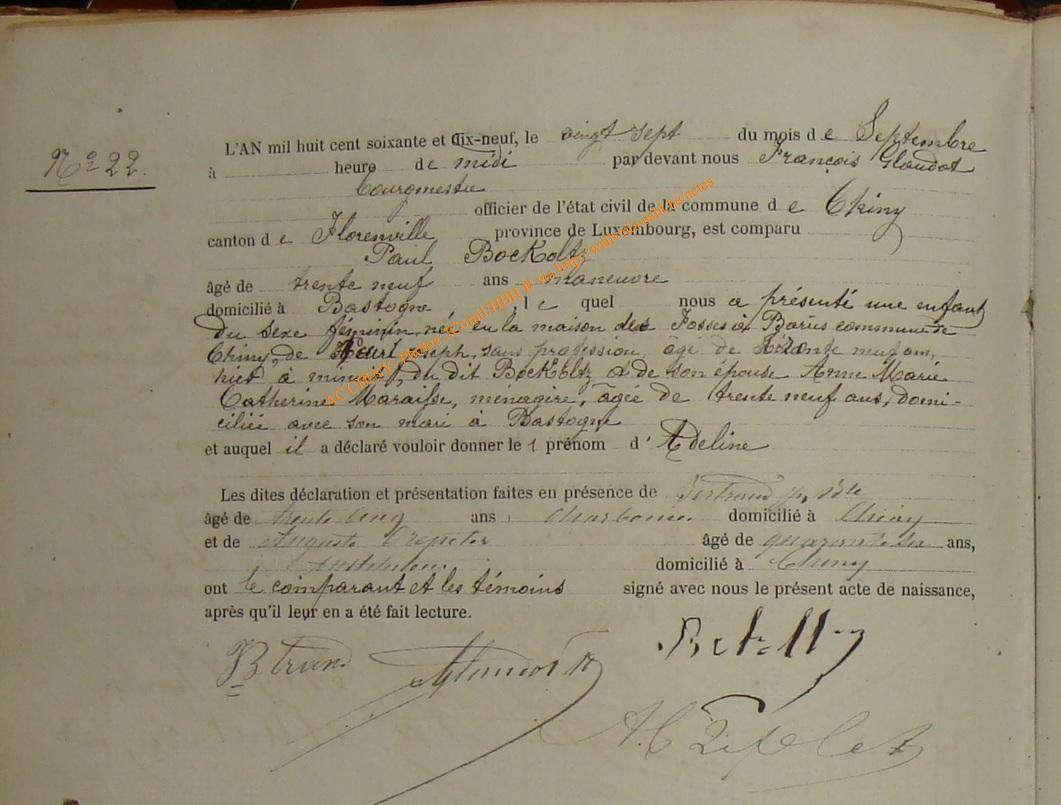 N° 22.
L'AN mil huit cent soixante et dix-neuf, le vingt sept du mois d e Septembre
à heure de midi par devant nous François Glaudot
bourgmestre
officier de l'état civil de la commune d e Chiny
canton d e Florenville province de Luxembourg, est comparu
Paul Bockoltz
âgé de trente neuf ans manœuvre
domicilié à Bastogne , l e quel nous a présenté une enfant
du sexe féminin, née en la maison des Fosses à commune de
Chiny, de Joseph, sans profession, âgé de neuf ans,
hier à minuit, du dit Bockoltz & de son épouse Anne Marie
Catherine Maraisse, menagère, âgée de trente neuf ans, domi-
ciliée avec son mari à Bastogne
et auquel il a déclaré vouloir donner le 1 prénom d' Adeline
Les dites déclaration et présentation faites en présence de Bertrand
âgé de trente cinq ans , charbonnier domicilié à Chiny
et de Auguste âgé de quarante six ans,
instituteur domicilié à Chiny
ont le comparant et les témoins signé avec nous le présent acte de naissance,
après qu'il leur en a été fait lecture.